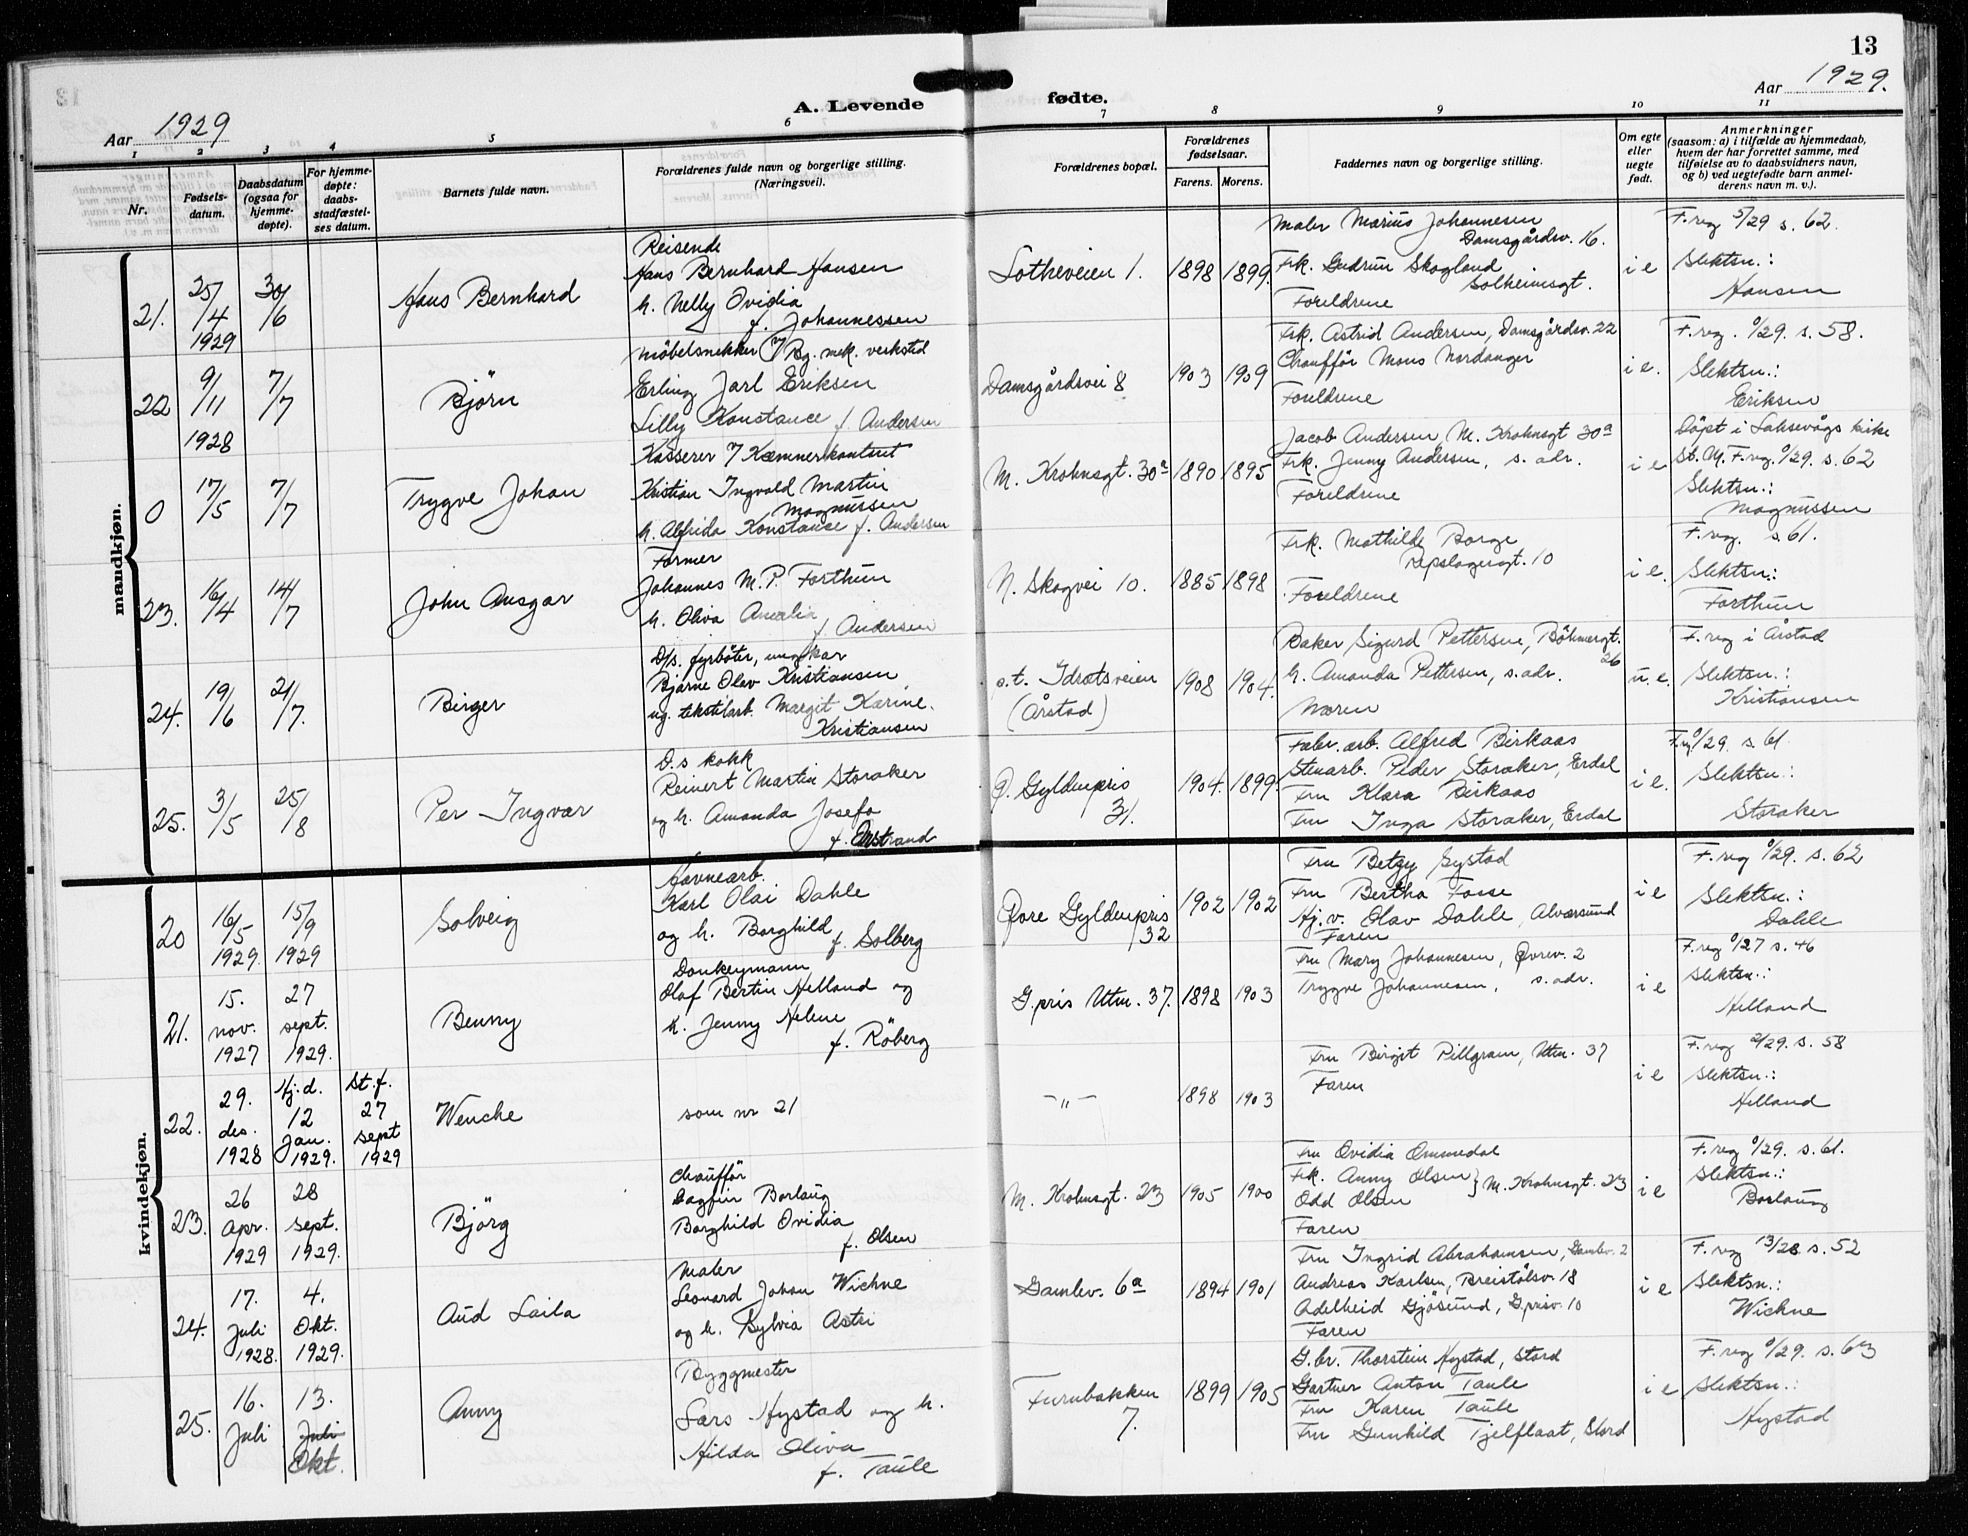 13
Aar 1929
A. Levende fødte.
Aar 1929.
1 2 3 4 5 6 7 8 9 10 11
Nr.
Fødsels-
datum.
Daabsdatum
(ogsaa for
hjemme-
døpte).
For hjemme-
døpte:
daabs-
stadfæstel-
ses datum.
Barnets fulde navn.
Forældrenes fulde navn og borgerlige stilling.
(Næringsvei).
Forældrenes bopæl.
Forældrenes
fødselsaar.
Farens. Morens.
Faddernes navn og borgerlige stilling.
Om egte
eller
uegte
født.
Anmerkninger
(saasom: a) i tilfælde av hjemmedaab,
hvem der har forrettet samme, med
tilføielse av to daabsvidners navn,
og b) ved uegtefødte barn anmel-
derens navn m. v.).
mandkjøn.
21.
25/4
1929
30/6
Hans Bernhard
Reisende
Hans Bernhard Hansen
h. Nelly Ovidia
f. Johannessen
Lotheveien 1.
1898 1899.
Maler Marius Johannesen
Damsgårdsv. 16.
Frk. Gudrun Skogland
Solheimsgt.
Foreldrene
i e
F. reg 5/29 s. 62.
Slektsn.:
Hansen
22
9/11
1928
7/7
Björn
Möbelsnekker v/ Bg. mek. verksted
Erling Jarl Eriksen
Lilly Konstance f. Andersen
Damsgårdsvei 8
1903 1909
Frk. Astrid Andersen, Damsgårdsv. 22
Chaufför Mons Nordanger
Foreldrene
i e.
F. reg. 0/29. s. 58.
Slektsn.:
Eriksen
0
17/5
7/7
Trygve Johan
Kasserer v/ Kæmnerkontoret
Kristian Ingvald Martin
Magnussen
h. Alfrida Konstance f. Andersen
M. Krohnsgt. 30a
1890 1895
Jacob Andersen, M. Krohnsgt 30a
Frk. Jenny Andersen, s. adr.
Foreldrene
i e
Döpt i Laksevågs kirke
St. M. F. reg. 0/29. s. 62
Slektsn.:
Magnussen
23.
16/4
14/7
John Ansgar
Former
Johannes M. P. Forthun
h. Oliva Amalia
f. Andersen
N. Skogvei 10.
1885 1898
Frk. Mathilde Borge
Repslagergt. 10
Foreldrene
i e.
F. reg. s. 61.
Slektsn.:
Forthun
24.
19/6
21/7.
Birger
D/s. fyrböter, ungkar
Bjarne Olav Kristiansen
ug. tekstilarb. Margit Karine.
Kristiansen
s.t. Idrætsveien
(Årstad)
1908 1904.
Baker Sigurd Pettersen, Böhmergt.
26
h. Amanda Pettersen, s. adr.
Moren
u. e.
F. reg i Årstad
Slektsn.:
Kristiansen
25.
3/5
25/8
Per Ingvar
D.s kokk
Reinert Martin Storaker
og h. Amanda Josefa
Ø. Gyldenpris
31.
1904. 1899.
Fabr. arb. Alfred Birkaas
Stenarb. Peder Storaker, Erdal
Fru Klara Birkaas
Fru Inga Storaker, Erdal
i e.
F. reg 0/29. s. 61.
Slektsn.:
Storaker
kvindekjøn.
20
16/5
1929.
15/9
1929
Solveig
Havnearb.
Karl Olai Dahle
og h. Borghild
f. Solberg
Øvre Gyldenpris
32
1902 1902
Fru Betzy Gystad
Fru Bertha Fosse
Hj. v. Olav Dahle, Alværsund
Faren
i e
F. reg 0/29. s. 62
Slektsn.:
Dahle
21.
15.
nov.
1927
27
sept.
1929.
Benny
Donkeymann
Olaf Bertin Helland og
h. Jenny Helene
f. Röberg
G.pris Utm. 37.
1898 1903
Fru Mary Johannesen, Øvrev. 2
Trygve Johannesen, s. adr.
i e
F. reg 0/27 s. 46
Slektsn.:
Helland
22.
29.
des.
1928
Hj. d.
12
Jan.
1929.
St. f.
27
sept
1929
Wenche
som nr 21
— " —
1898 1903
Fru Birgit Pillgram, Utm. 37
Faren
i e
F. reg 2/29. s. 58
Slektsn.:
Helland
23.
26
Apr.
1929
28
sept.
1929.
Björg
Chaufför
Dagfin Borlaug
Borghild Ovidia
f. Olsen
M. Krohnsgt. 23
1905 1900
Fru Ovidia Ommedal
Frk. Anny Olsen } M. Krohnsgt. 23
Odd Olsen
Faren
i e
F. reg 0/29. s. 61.
Slektsn.:
Borlaug
24.
17.
Juli
1928.
4.
Okt.
1929.
Aud Laila
Maler
Leonard Johan Wichne
og h. Sylvia Astri
Gamlev. 6a
1894 1901
Fru Ingrid Abrahamsen, Gamlev. 2
Andreas Karlsen, Breistölsv. 18
Adelheid Gjösund, G.prisv. 10
Faren
i e
F. reg 13/28 s. 52
Slektsn.:
Wichne
25.
16.
Juli
13.
Juli
Okt.
Anny
Byggmester
Lars Hystad og h.
Hilda Oliva
f. Taule
Furubakken
7.
1899 1905
G.br. Thorstein Hystad, Stord
Gartner Anton Taule
Fru Karen Taule
Fru Gunhild Tjelflaat, Stord
i e
F. reg 0/29. s. 63
Slektsn.:
Hystad